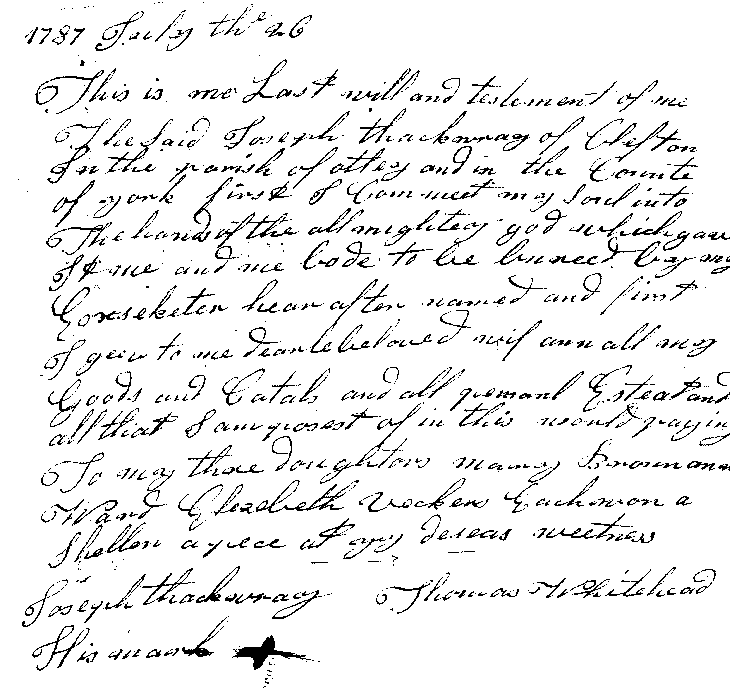 1787 July the 26
This is me Last will and testement of me
The Said Joseph thackwray of Clefton
In the parish of otley and in the Counte
of york first I Commeet my Soul into
The hands of the allmightey god which gave
It me and me bode to be bureed by my
Exseketer hear after named and first
I geev to me dearlebeloved wif ann all my
Goods and Catals and all personl Esteat and
all that I am posest of in this world paying
To my thre doughters marey Brown ann
Ward Elezebeth Veckers Eachwon a
Shellen a pece at my deseas weetness
Joseph thackwray Thomas Whitehead
His mark